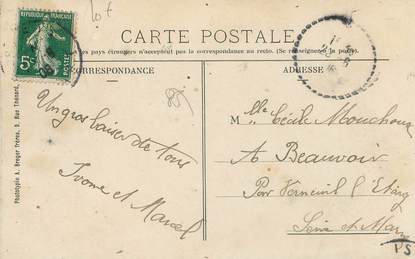 lot
RÉPUBLIQUE FRANÇAISE
5c POSTES
CARTE POSTALE
pays étrangers n'acceptent pas la correspondance au recto. (Se renseigner à la poste).
CORRESPONDANCE
ADRESSE
Phototypie A. Breger Frères, 9, Rue Thénard,
Un gros baiser de tous
Ivone et Marcel
Mlle Cécile Mouchoux
A Beauvoir
Par Verneuil l'Etang
Seine et Marne
VS